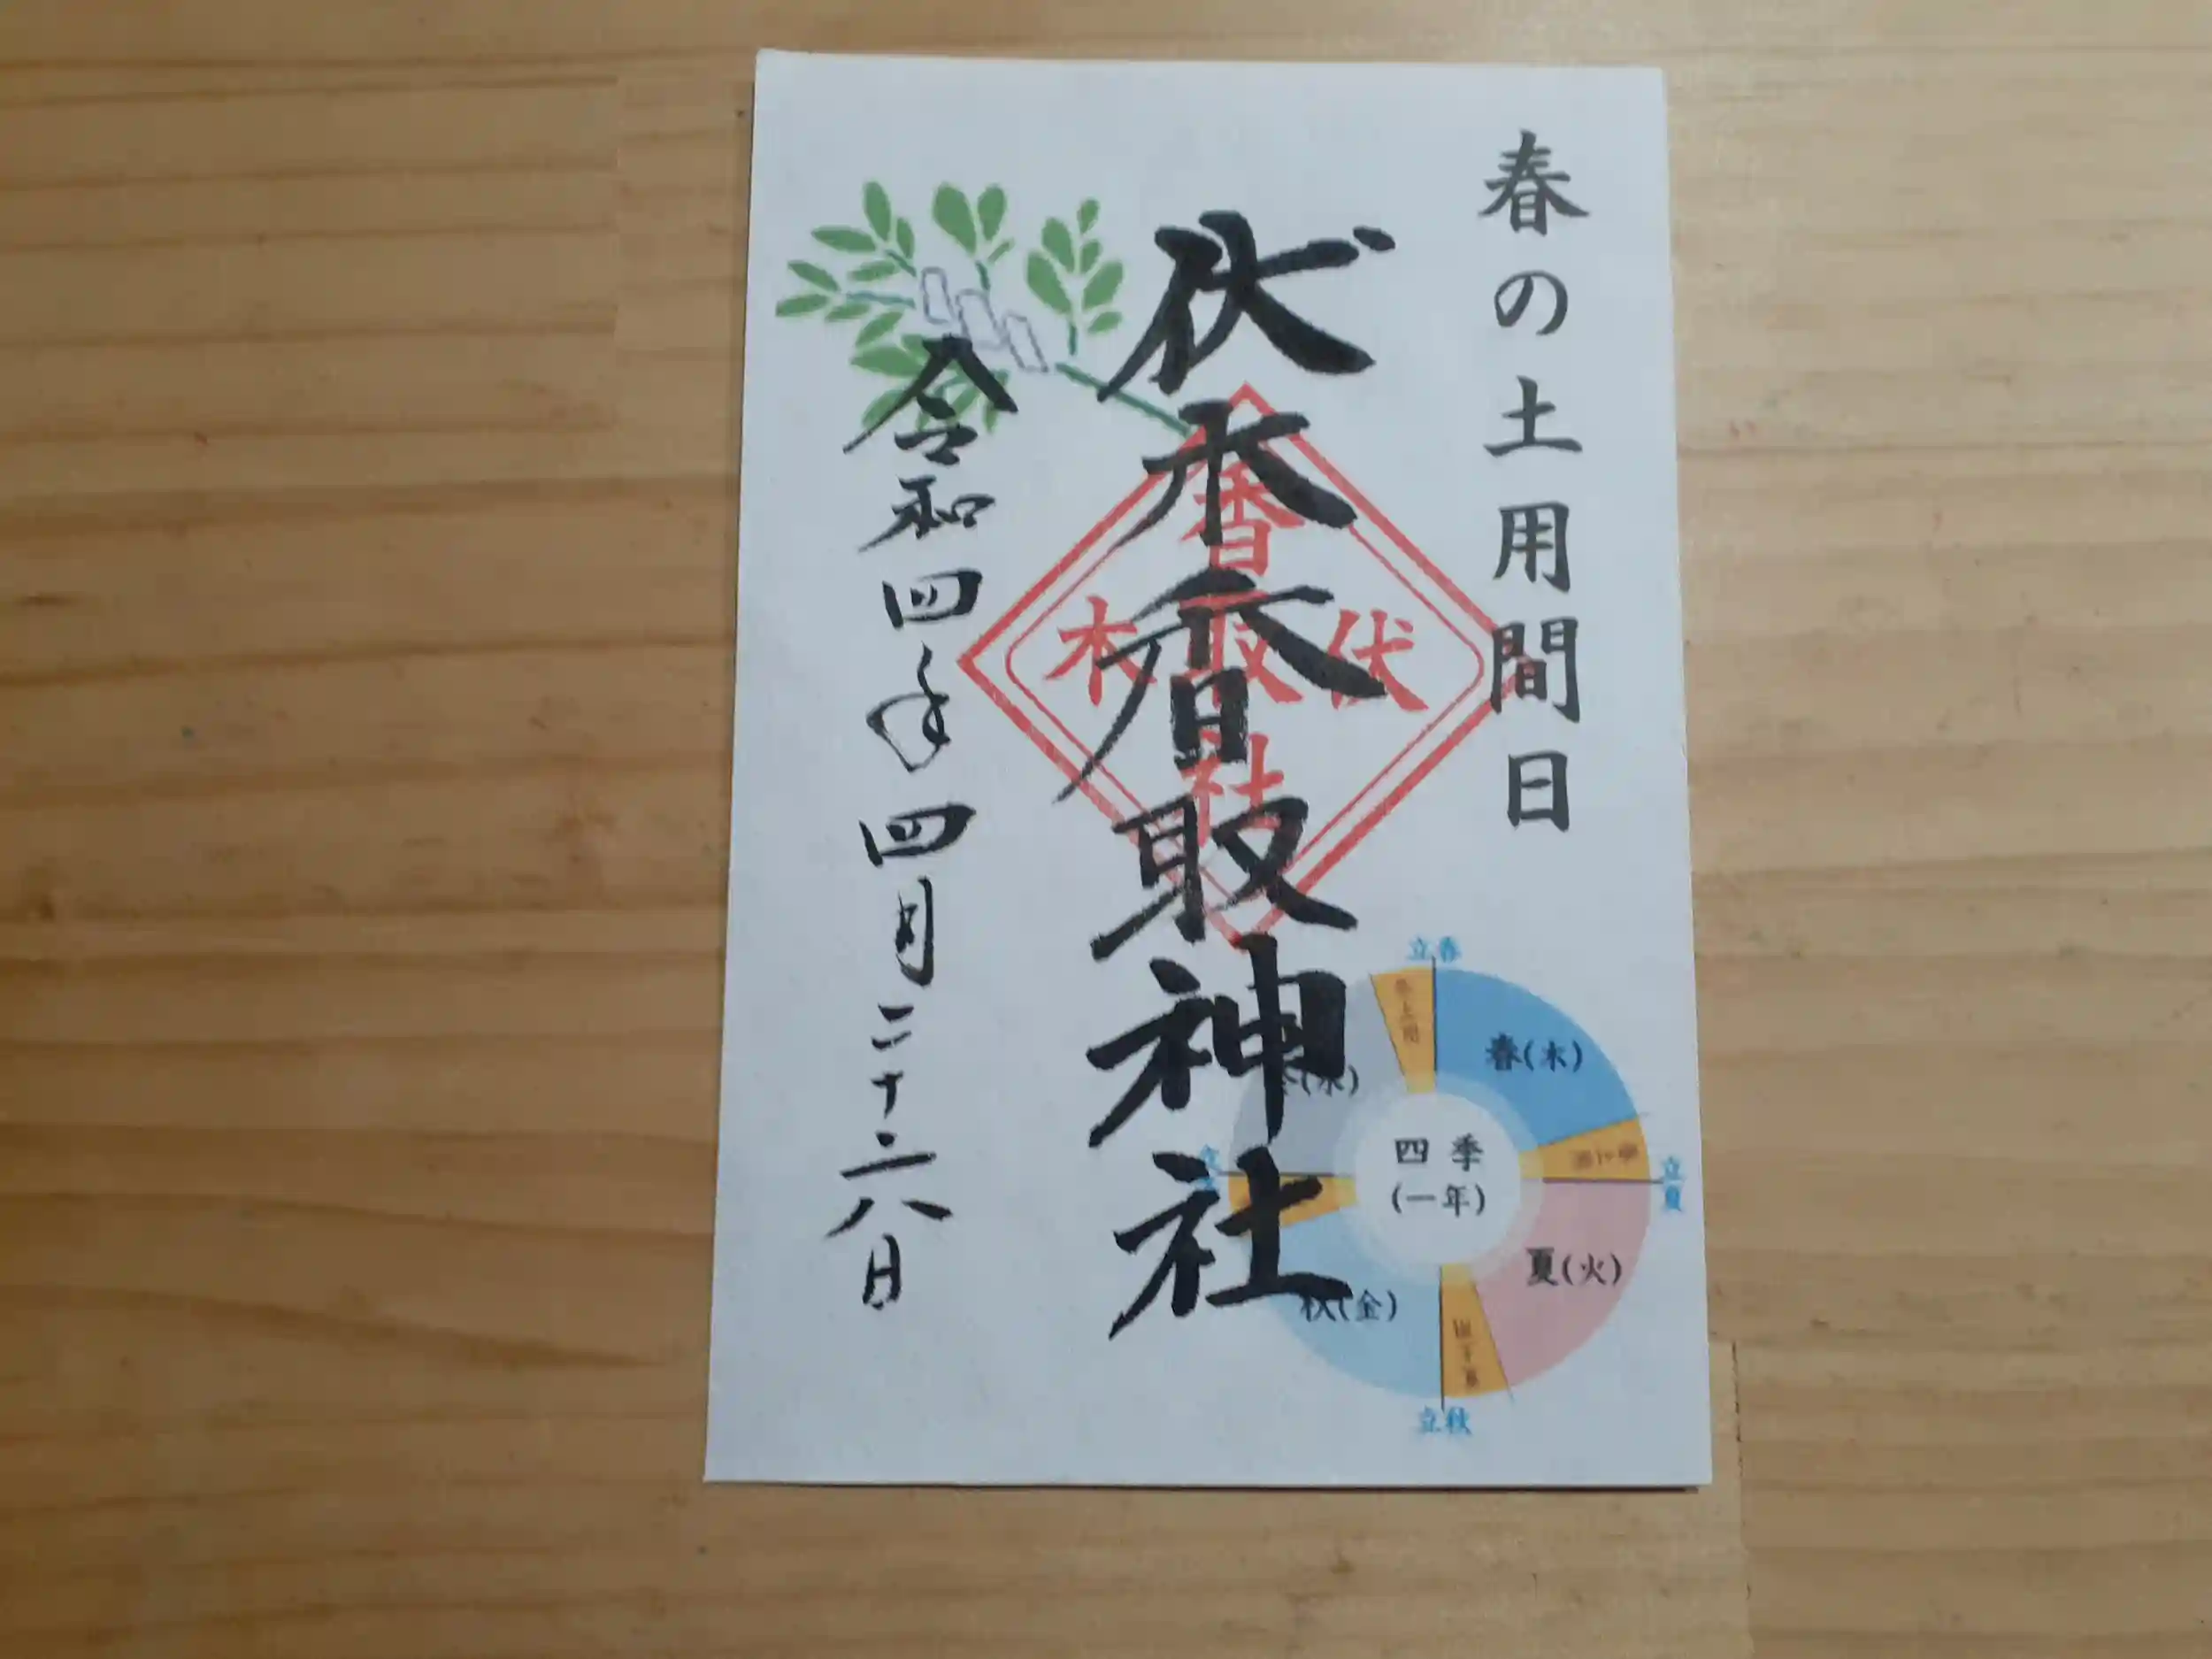 春の土用間日
伏木香取神社
香取社
伏
木
令和四年四月二十六日
立春
春土用
春(木)
立夏
夏(火)
立秋
秋(金)
(水)
四季
(一年)